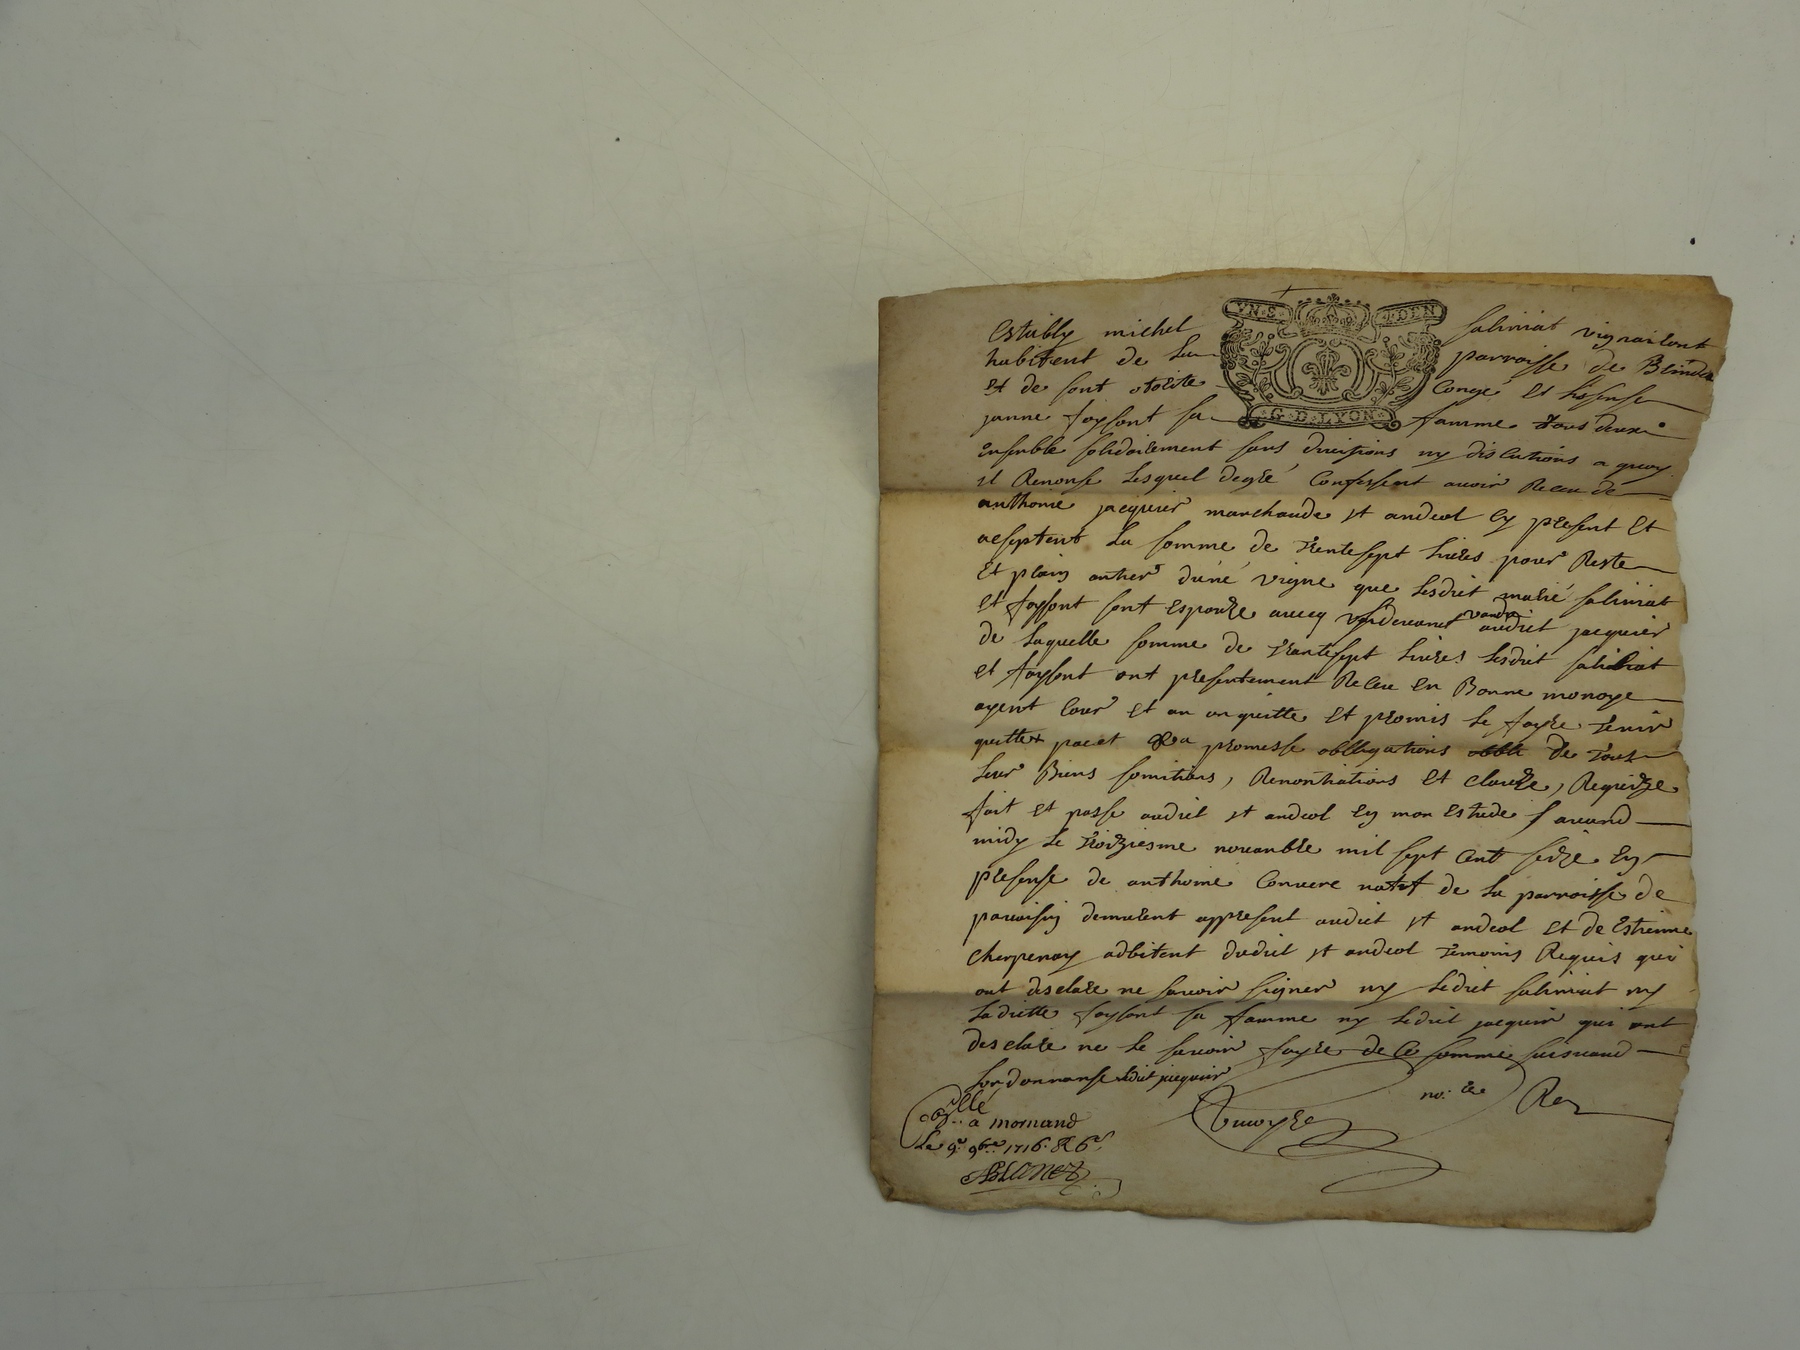 VN·S· 4·DEN
G·D·LYON·
Establÿ michel salimiat vignairont
habitent de La parroisse de
Et de sont otorite Congé Et lisense
janne faysont sa famme Tous deux
Ensenble solidairement sans diuisions ny discutions a quoy
il Renonse Lesquel degré Confessent auoir Receu de
anthome jacquier marchaude st andeol Cy present Et
aseptent La somme de Trentesept liures pour Reste
Et plain antier dune vigne que Lesdiet marié salimiat
Et faysont sont auec vandu audiet jacquier
de Laquelle somme de Trantesept liures Lesdiet salimiat
Et faysont ont presentement Receu En Bonne monoye
ayent Cour Et an on quitte Et promis Le fayre Tenir
quitte pact promesse obligations obli De Tous
Leur Biens somitions, Renontiations Et clause, Requize
fait Et passe audiet st andeol En mon Estude auand
midy Le Troiziesme nouanbre mil sept Cent seize En
presense de anthoine Convere natif de La parroisse de
demurent appresent audiet st andeol Et de Estienne
Cherpenay adbitent dudiet st andeol Temoins Requis qui
ont desclare ne sauoir signer ny Lediet salimiat ny
Ladiette faysont sa famme ny Lediet jacquier qui ont
desclare ne Le sauoir fayre de Ce somme suiuand
Lordonnanse Ledit jacquier
no.re Re
Con.llé a mornand
Le 9.e 9bre 1716. R 6s